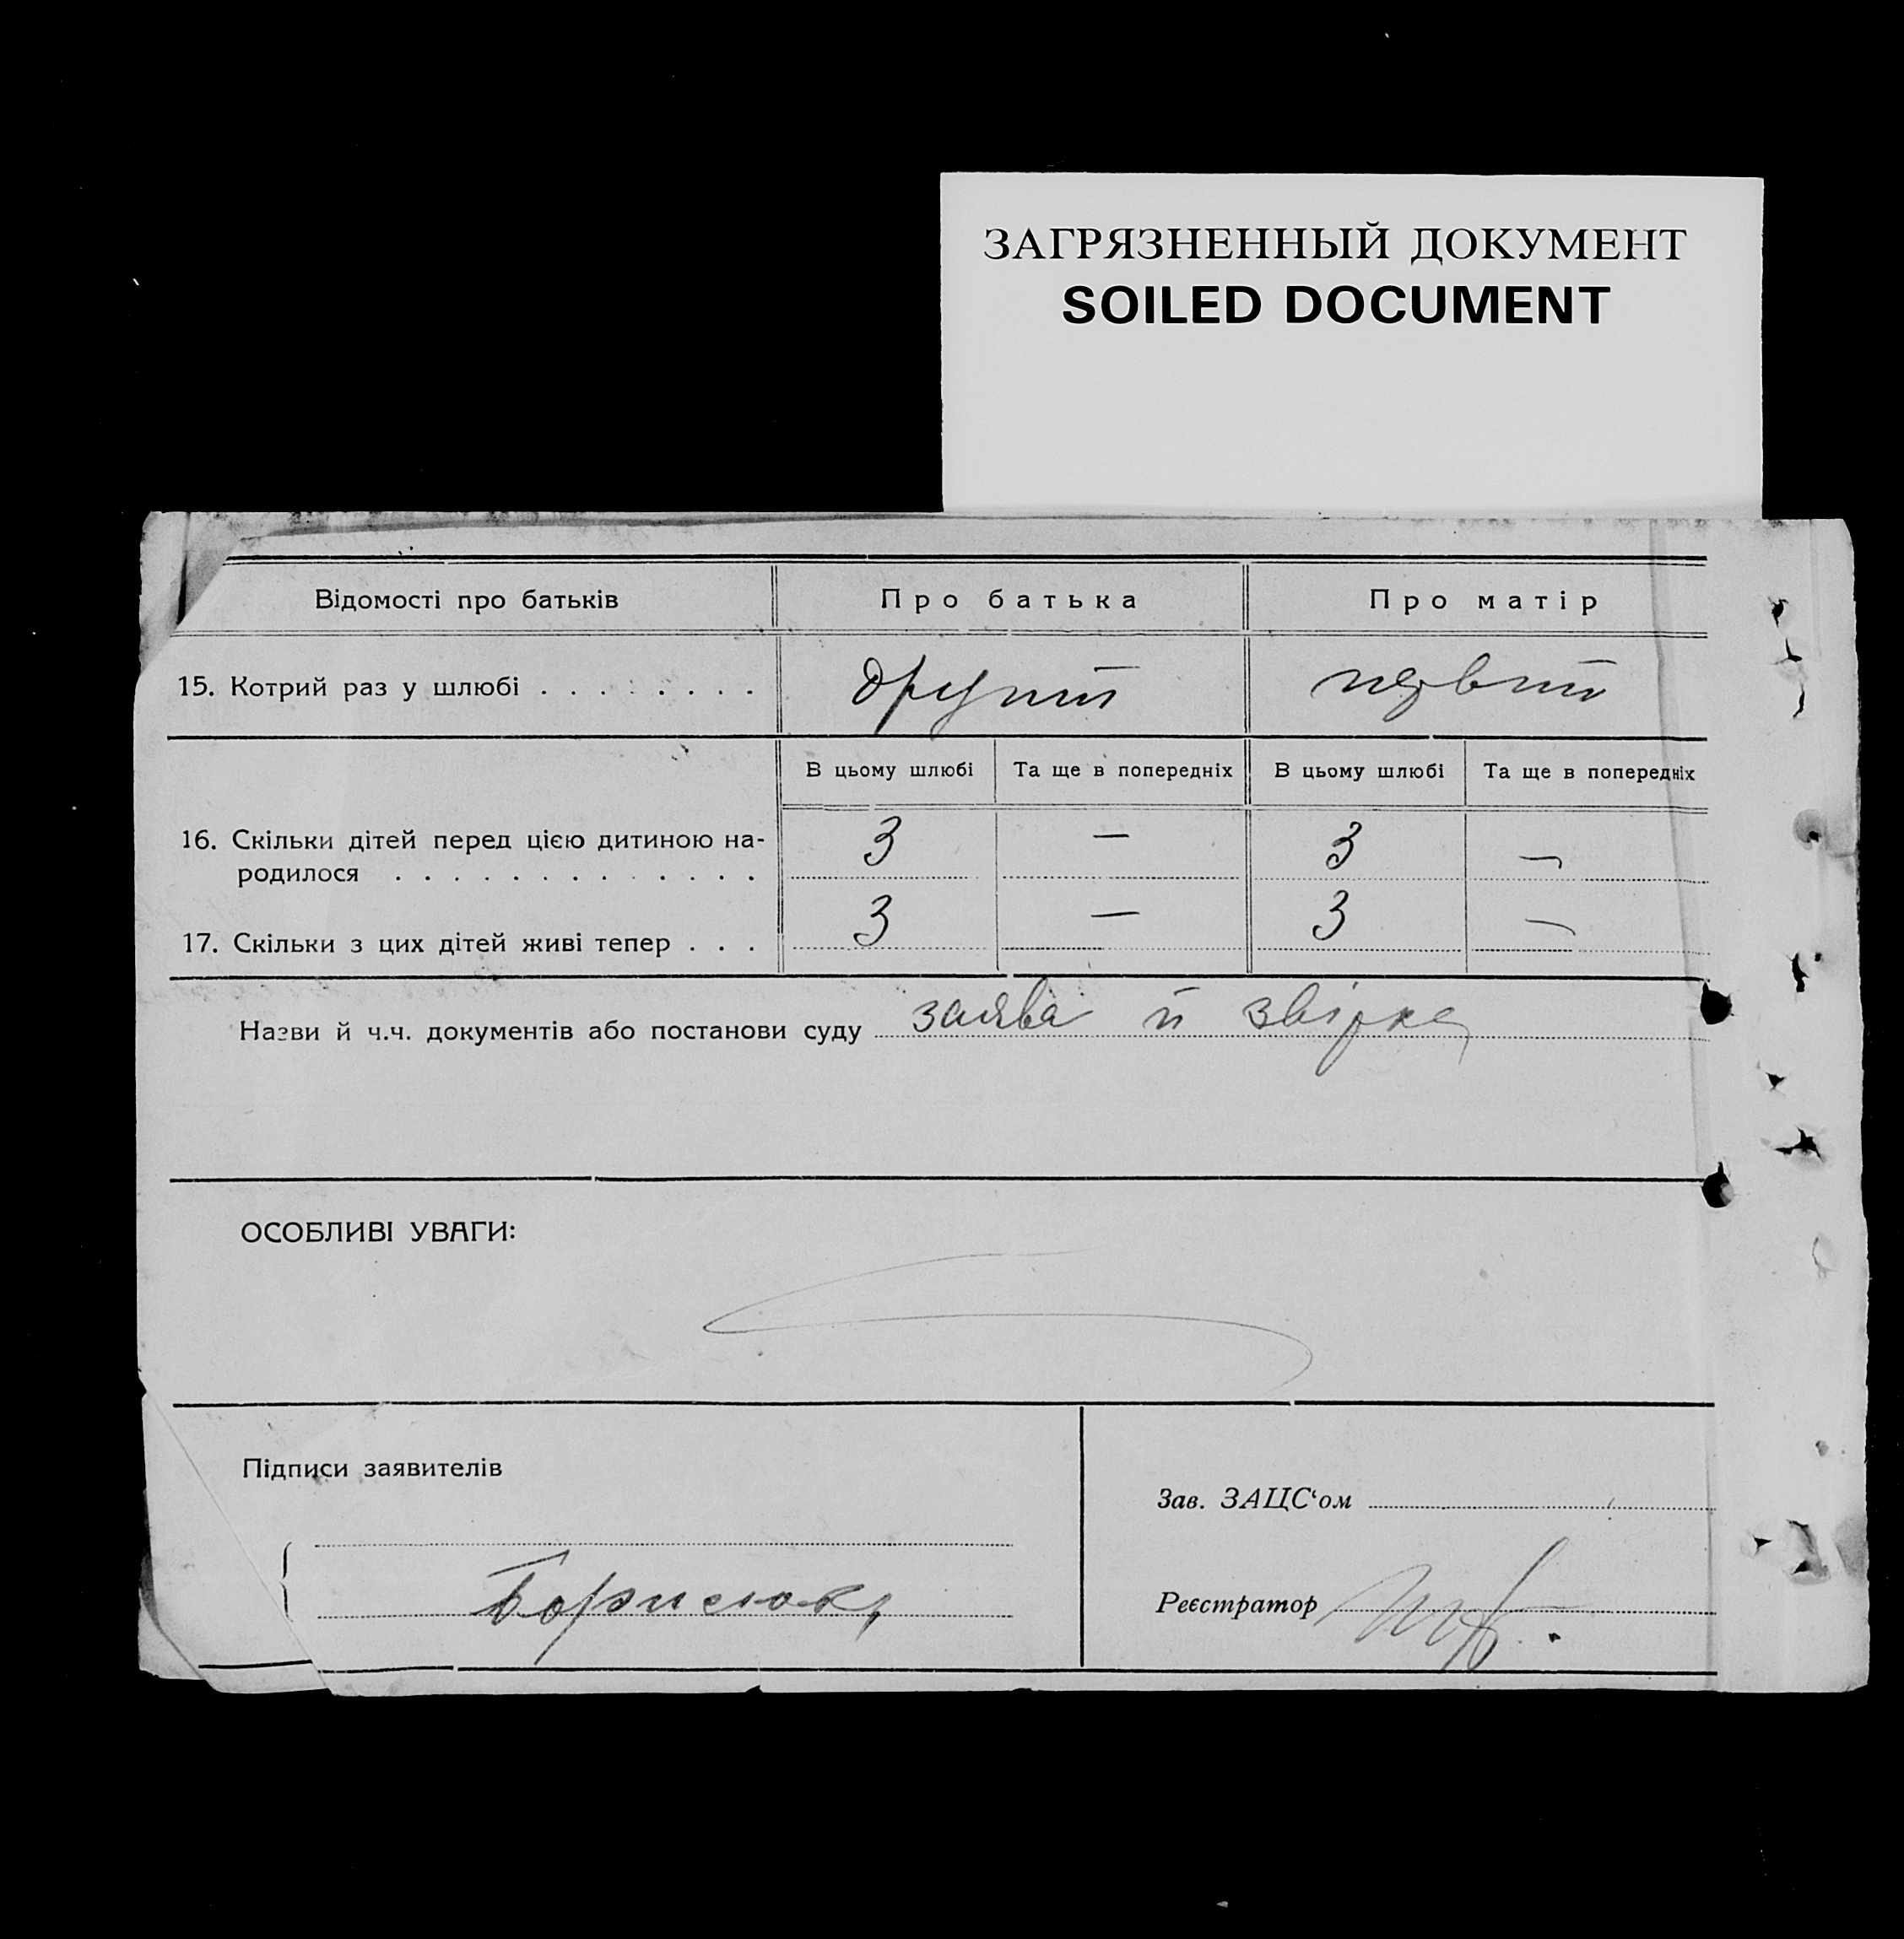 ЗАГРЯЗНЕННЫЙ ДОКУМЕНТ
SOILED DOCUMENT
Відомості про батьків Про батька Про матір
15. Котрий раз у шлюбі . . . . . . . . другий первий
В цьому шлюбі Та ще в попередніх В цьому шлюбі Та ще в попередніх
16. Скільки дітей перед цією дитиною на-
родилося . . . . . . . . . . . . . 3 — 3 —
17. Скільки з цих дітей живі тепер . . . 3 — 3 —
Назви й ч.ч. документів або постанови суду заява й звірка
ОСОБЛИВІ УВАГИ:
Підписи заявителів
Зав. ЗАЦС‘ом
Борисюк
Реєстратор